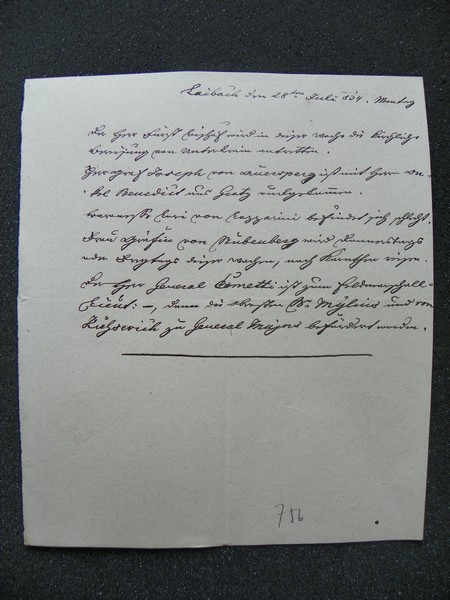 Laibach den 28ten Juli 834. Montag
Der Herr Fürst Bischof wird in dieser Woche die kirchliche
Bereisung von Unterkrain antretten.
Herr Graf Joseph von Auersperg ist mit Herr On-
kel Benedict aus Gratz
von Lazzarini befindet sich schlecht.
Frau Gräfin von Stubenberg wird Donnerstags
oder Freytags dieser Wochen, nach Kärnthen reisen.
Der Herr General Cometti ist zum Feldmarschall-
Lieut: –, dann die Obersten Br Mylius und von
zu General Majors befördert worden.
756